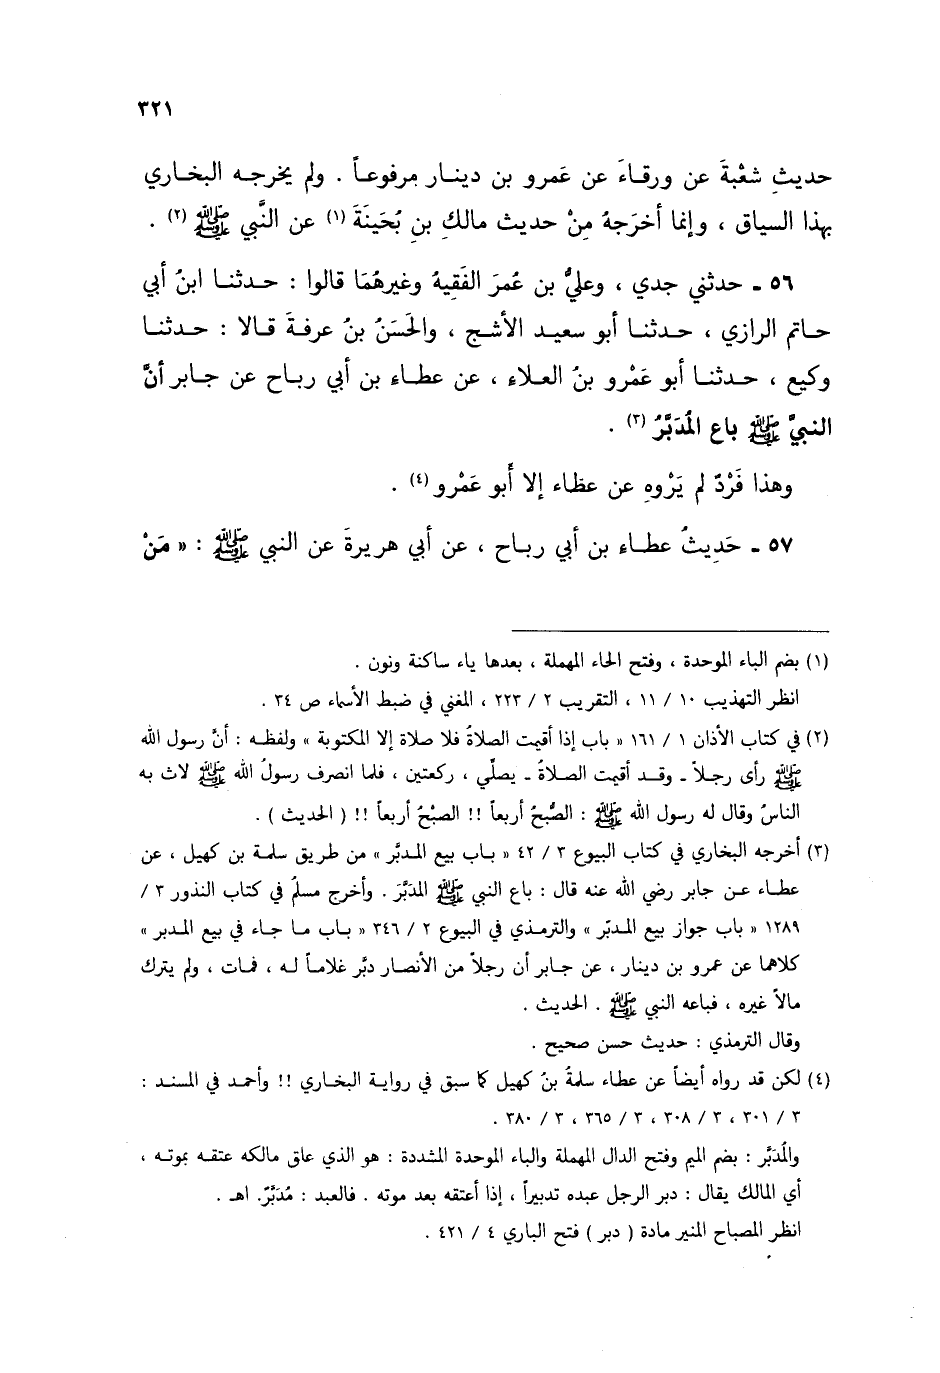 ٣٢١
حديثِ شعْبةَ عن ورقاءَ عن عَمرو بن دينـار مرفوعـاً . ولم يخرجـه البخـاري
بهذا السياق ، وإنما أخرَجهُ مِنْ حديث مالكِ بنِ بُحَينَةَ (١) عن النَّبي ﷺ (٢) .
٥٦ ـ حدثني جدي ، وعليُّ بن عُمرَ الفَقِيهُ وغيرهُمَا قالوا : حـدثنـا ابنُ أبي
حـاتم الرازي ، حـدثنـا أبو سعيـد الأشـج ، والحَسَنُ بنُ عرفـةَ قـالا : حـدثنـا
وكيع ، حـدثنـا أبو عَمْرو بنُ العـلاء ، عن عطـاء بن أبي ربـاح عن جـابر أنَّ
النبيَّ ﷺ باع المُدَبَّرُ (٣) .
وهذا فَرْدٌ لم يَرْوِهِ عن عطاء إلا أَبو عَمْرو (٤) .
٥٧ ـ حَدِيثُ عطـاء بن أبي ربـاح ، عن أبي هريرةَ عن النبي ﷺ : « مَنْ
(١) بضم الباء الموحدة ، وفتح الحاء المهملة ، بعدها ياء ساكنة ونون .
انظر التهذيب ١٠ / ١١ ، التقريب ٢ / ٢٢٣ ، المغني في ضبط الأسماء ص ٣٤ .
(٢) في كتاب الأذان ١ / ١٦١ « باب إذا أقيمت الصلاةُ فلا صلاة إلا المكتوبة » ولفظـه : أنَّ رسول الله
ﷺ رأى رجـلاً ـ وقـد أقيمت الصلاةُ ـ يصلّي ، ركعتين ، فلما انصرف رسولُ الله ﷺ لاث به
الناسُ وقال له رسول الله ﷺ : الصُّبحُ أربعاً !! الصبْحُ أربعاً !! ( الحديث ) .
(٣) أخرجه البخاري في كتاب البيوع ٣ / ٤٢ « بـاب بيع المـدبَّر » من طريق سلمـة بن كهيل ، عن
عطـاء عـن جابر رضي الله عنه قال : باع النبي ﷺ المدَبَّرَ . وأخرج مسلمٌ في كتاب النذور ٣ /
١٢٨٩ « باب جواز بيع المـدبّر » والترمـذي في البيوع ٢ / ٣٤٦ « بـاب مـا جـاء في بيع المـدبر »
كلاهما عن عمرو بن دينار ، عن جـابر أن رجـلاً من الأنصـار دبَّر غلامـاً لـه ، فمـات ، ولم يترك
مالاً غيره ، فباعه النبي ﷺ . الحديث .
وقال الترمذي : حديث حسن صحيح .
(٤) لكن قد رواه أيضاً عن عطاء سلمةُ بنُ كهيل كما سبق في روايـة البخـاري !! وأحمـد في المسنـد :
٣ / ٣٠١ ، ٣ / ٣٠٨ ، ٣ / ٣٦٥ ، ٣ / ٣٨٠ .
والمُدَبَّر : بضم الميم وفتح الدال المهملة والباء الموحدة المشددة : هو الذي عاق مالكه عتقـه بموتـه ،
أي المالك يقال : دبر الرجل عبده تدبيراً ، إذا أعتقه بعد موته . فالعبد : مُدَبَّرٌ. اهـ .
انظر المصباح المنير مادة ( دبر ) فتح الباري ٤ / ٤٢١ .